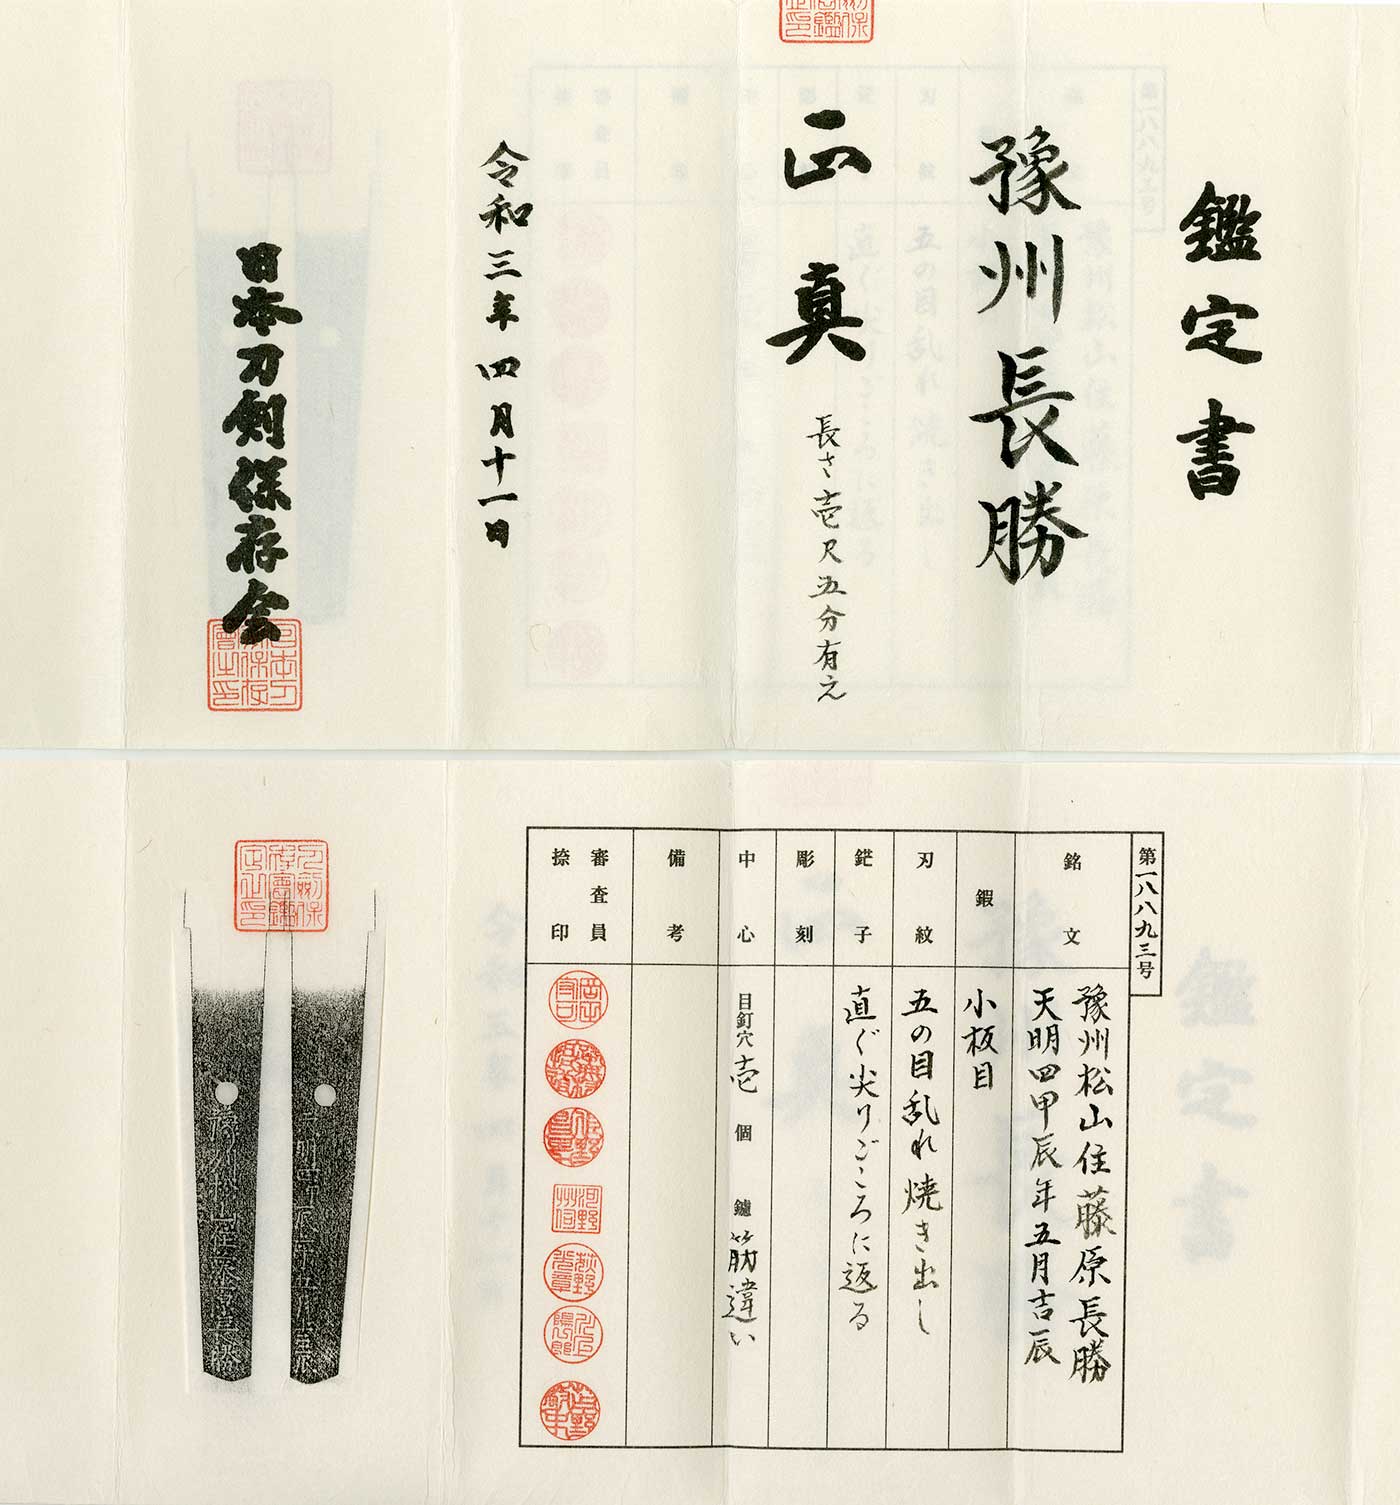 鑑定書
豫州長勝
正真
長さ壱尺五分有之
令和三年四月十一日
日本刀剣保存会
第一八八九三号
銘文
豫州松山住藤原長勝
天明四甲辰年五月吉辰
鍜
小板目
刃紋
五の目乱れ焼き出し
鋩子
直ぐ尖りごころに返る
彫刻
中心
目釘穴壱個 鑢筋違い
備考
審査員
捺印